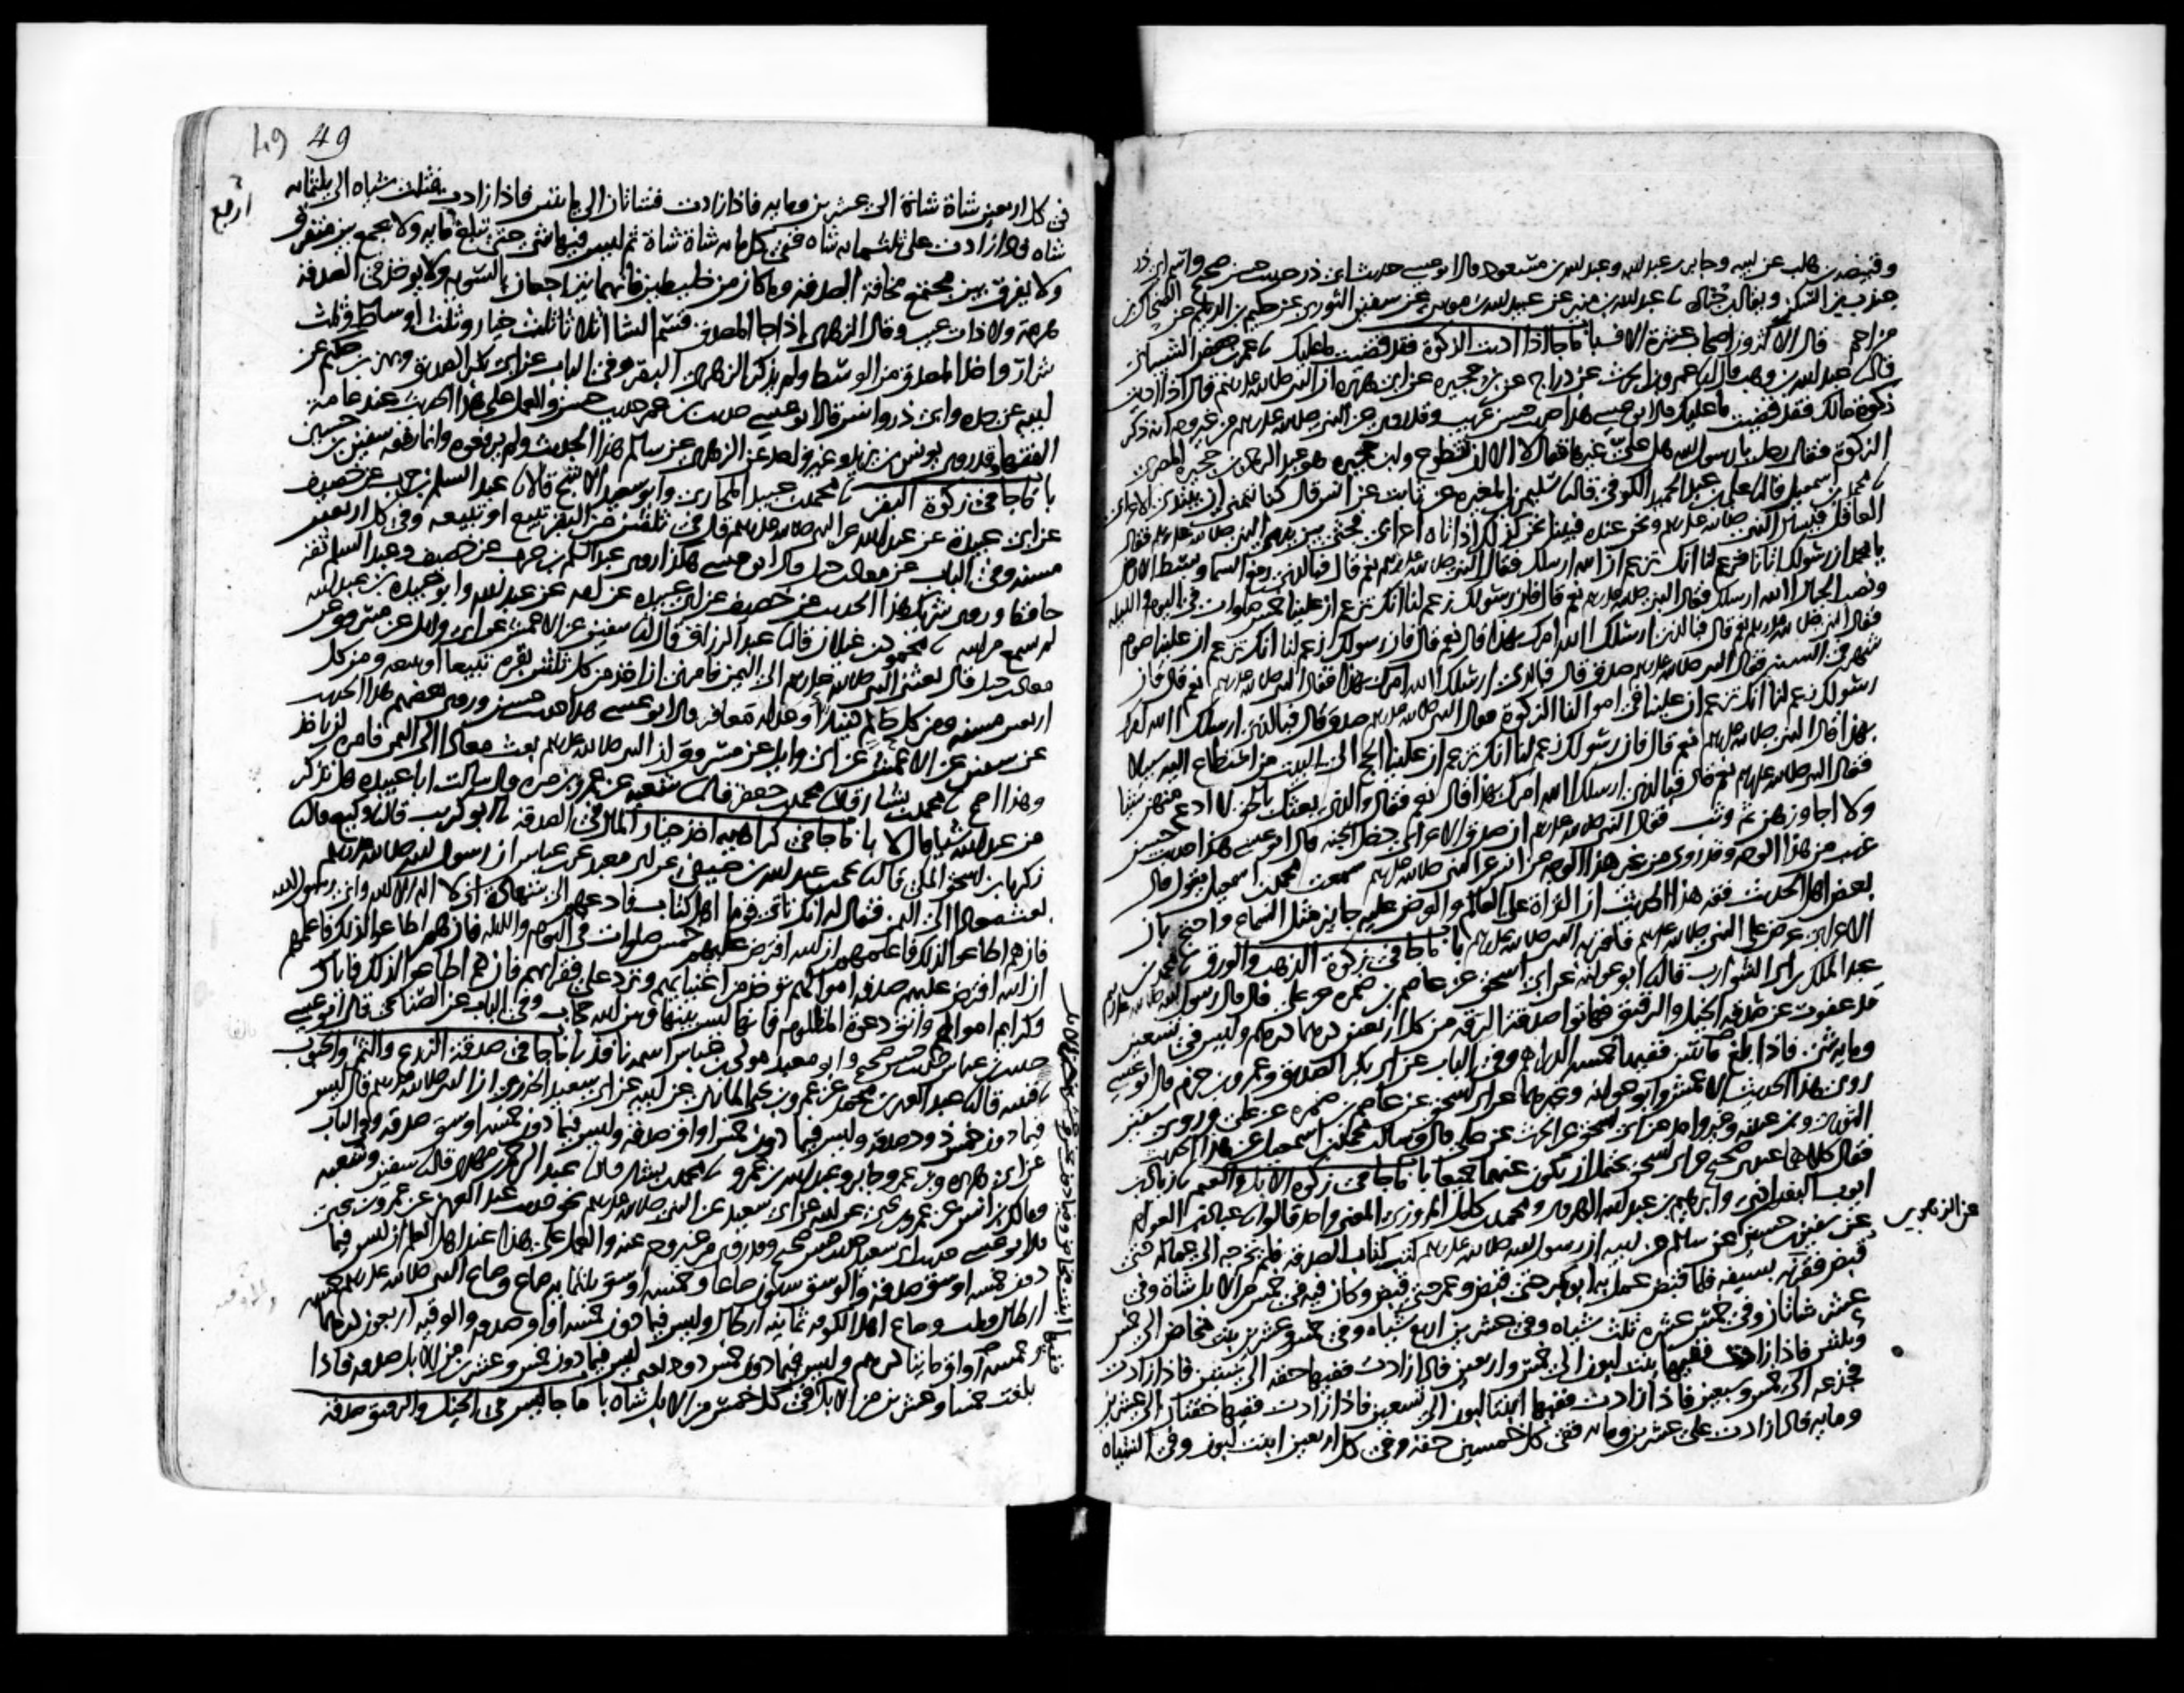 وقبيصة بن هلب عن ابيه وجابر بن عبد الله وعبد الله بن مسعود قال ابو عيسى حديث ابي ذر حديث حسن صحيح واسم ابي ذر
جندب بن السكن ويقال ابن جنادة نا عبد الله بن منير عن عبيد الله بن موسى عن سفين الثوري عن حكيم بن الديلم عن الضحاك بن
مزاحم قال الاكثرون اصحاب عشرة الاف باب ما جا اذا اديت الزكوة فقد قضيت ما عليك نا عمر بن حفص الشيباني
قال نا عبد الله بن وهب قال نا عمرو بن الحرث عن دراج عن ابن حجيرة عن ابي هريرة ان النبي صلى الله عليه وسلم قال اذا اديت
زكوة مالك فقد قضيت ما عليك قال ابو عيسى هذا حديث حسن غريب وقد روي عن النبي صلى الله عليه وسلم من غير وجه انه ذكر
الزكوة فقال رجل يا رسول الله هل علي غيرها فقال لا الا ان تطوع وابن حجيرة هو عبد الرحمن بن حجيرة المصري
نا محمد بن اسمعيل قال نا علي بن عبد الحميد الكوفي قال نا سليمن بن المغيرة عن ثابت عن انس قال كنا نتمنى ان يبتدي الاعرابي
العاقل فيسأل النبي صلى الله عليه وسلم ونحن عنده فبينا نحن كذلك اذ اتاه اعرابي فجثى بين يدي النبي صلى الله عليه وسلم فقال
يا محمد ان رسولك اتانا فزعم لنا انك تزعم ان الله ارسلك فقال النبي صلى الله عليه وسلم نعم قال فبالذي رفع السما وبسط الارض
ونصب الجبال االله ارسلك فقال النبي صلى الله عليه وسلم نعم قال فان رسولك زعم لنا انك تزعم ان علينا خمس صلوات في اليوم والليلة
فقال النبي صلى الله عليه وسلم نعم قال فبالذي ارسلك االله امرك بهذا قال نعم قال فان رسولك زعم لنا انك تزعم ان علينا صوم
شهر في السنة فقال النبي صلى الله عليه وسلم صدق قال فبالذي ارسلك االله امرك بهذا فقال النبي صلى الله عليه وسلم نعم قال فان
رسولك زعم لنا انك تزعم ان علينا في اموالنا الزكوة فقال النبي صلى الله عليه وسلم صدق قال فبالذي ارسلك االله امرك
بهذا قال النبي صلى الله عليه وسلم نعم قال فان رسولك زعم لنا انك تزعم ان علينا الحج الى البيت من استطاع اليه سبيلا
فقال النبي صلى الله عليه وسلم نعم قال فبالذي ارسلك االله امرك بهذا قال نعم فقال والذي بعثك بالحق لا ادع منهن شيئا
ولا اجاوزهن ثم وثب فقال النبي صلى الله عليه وسلم ان صدق الاعرابي دخل الجنة قال ابو عيسى هذا حديث حسن
غريب من هذا الوجه وقد روي من غير هذا الوجه عن انس عن النبي صلى الله عليه وسلم سمعت محمد بن اسمعيل يقول قال
بعض اهل الحديث فقه هذا الحديث ان القراة على العالم والعرض عليه جايز مثل السماع واحتج بان
الاعرابي عرض على النبي صلى الله عليه وسلم فاقر به النبي صلى الله عليه وسلم باب ما جا في زكوة الذهب والورق نا محمد بن
عبد الملك بن ابي الشوارب قال نا ابو عوانة عن ابي اسحق عن عاصم بن ضمرة عن علي قال قال رسول الله صلى الله عليه وسلم
قد عفوت عن صدقة الخيل والرقيق فهاتوا صدقة الرقة من كل اربعين درهما درهم وليس في تسعين
وماية شي فاذا بلغت مائتين ففيها خمسة الدراهم وفي الباب عن ابي بكر الصديق وعمرو بن حزم قال ابو عيسى
روى هذا الحديث الاعمش وابو عوانة وغيرهما عن ابي اسحق عن عاصم بن ضمرة عن علي وروى سفين
الثوري وابن عيينة وغير واحد عن ابي اسحق عن الحرث عن علي قال وسالت محمد بن اسمعيل عن هذا الحديث
فقال كلاهما عندي صحيح عن ابي اسحق يحتمل ان يكون عنهما جميعا باب ما جا في زكوة الابل والغنم نا زياد بن
ايوب البغدادي وابراهيم بن عبد الله الهروي ومحمد بن كامل المروزي المعنى واحد قالوا نا عباد بن العوام
عن سفين بن حسين عن سالم عن ابيه ان رسول الله صلى الله عليه وسلم كتب كتاب الصدقة فلم يخرجه الى عماله حتى
عن الزهري
قبض فقرنه بسيفه فلما قبض عمل به ابو بكر حتى قبض وعمر حتى قبض وكان فيه في خمس من الابل شاة وفي
عشر شاتان وفي خمس عشرة ثلث شياه وفي عشرين اربع شياه وفي خمس وعشرين بنت مخاض الى خمس
وثلثين فاذا زادت ففيها بنت لبون الى خمس واربعين فاذا زادت ففيها حقة الى ستين فاذا زادت
فجذعة الى خمس وسبعين فاذا زادت ففيها ابنتا لبون الى تسعين فاذا زادت ففيها حقتان الى عشرين
وماية فاذا زادت على عشرين وماية ففي كل خمسين حقة وفي كل اربعين ابنت لبون وفي الشياه
49 49
في كل اربعين شاة شاة الى عشرين وماية فاذا زادت فشاتان الى مايتين فاذا زادت فثلث شياه الى ثلثماية
شاة فاذا زادت على ثلثماية شاة ففي كل ماية شاة شاة ثم ليس فيها شي حتى تبلغ ماية ولا يجمع بين متفرق
اربع
ولا يفرق بين مجتمع مخافة الصدقة وما كان من خليطين فانهما يتراجعان بالسوية ولا يوخذ في الصدقة
هرمة ولا ذات عيب وقال الزهري اذا جا المصدق قسم الشا اثلاثا ثلث خيار وثلث اوساط وثلث
شرار واخذ المصدق من الوسط ولم يذكر الزهري البقر وفي الباب عن ابي بكر الصديق وبهز بن حكيم عن
ابيه عن جده وابي ذر وانس قال ابو عيسى حديث ابن عمر حديث حسن والعمل على هذا الحديث عند عامة
الفقها وقد روى يونس بن يزيد وغير واحد عن الزهري عن سالم هذا الحديث ولم يرفعوه وانما رفعه سفين بن حسين
باب ما جا في زكوة البقر نا محمد بن عبيد المحاربي وابو سعيد الاشج قالا نا عبد السلم بن حرب عن خصيف
عن ابي عبيدة عن عبد الله عن النبي صلى الله عليه وسلم قال في ثلثين من البقر تبيع او تبيعة وفي كل اربعين
مسنة وفي الباب عن معاذ بن جبل قال ابو عيسى هكذا روى عبد السلم بن حرب عن خصيف وعبد السلم ثقة
حافظ وروى شريك هذا الحديث عن خصيف عن ابي عبيدة عن امه عن عبد الله وابو عبيدة بن عبد الله
لم يسمع من ابيه نا محمود بن غيلان قال نا عبد الرزاق قال نا سفين عن الاعمش عن ابي وايل عن مسروق عن
معاذ بن جبل قال بعثني النبي صلى الله عليه وسلم الى اليمن فامرني ان اخذ من كل ثلثين بقرة تبيعا او تبيعة ومن كل
اربعين مسنة ومن كل حالم دينارا او عدله معافر قال ابو عيسى هذا حديث حسن وروى بعضهم هذا الحديث
عن سفين عن الاعمش عن ابي وايل عن مسروق ان النبي صلى الله عليه وسلم بعث معاذا الى اليمن فامره ان ياخذ
وهذا اصح نا محمد بن بشار قال نا محمد بن جعفر قال نا شعبة عن عمرو بن مرة قال سالت ابا عبيدة هل تذكر
من عبد الله شيا قال لا باب ما جا في كراهية اخذ خيار المال في الصدقة نا ابو كريب قال نا وكيع قال نا
زكريا بن اسحق المكي قال نا يحيى بن عبد الله بن صيفي عن ابي معبد عن ابن عباس ان رسول الله صلى الله عليه وسلم
بعث معاذا الى اليمن فقال له انك تاتي قوما اهل كتاب فادعهم الى شهادة ان لا اله الا الله واني رسول الله
فان هم اطاعوا لذلك فاعلمهم ان الله افترض عليهم خمس صلوات في اليوم والليلة فان هم اطاعوا لذلك فاعلمهم
ان الله افترض عليهم صدقة اموالهم توخذ من اغنيايهم وترد على فقرايهم فان هم اطاعوا لذلك فاياك
وكرايم اموالهم واتق دعوة المظلوم فانها ليس بينها وبين الله حجاب وفي الباب عن الصنابحي قال ابو عيسى
حديث ابن عباس حديث حسن صحيح وابو معبد مولى ابن عباس اسمه نافذ باب ما جا في صدقة الزرع والثمر والحبوب
نا قتيبة قال نا عبد العزيز بن محمد عن عمرو بن يحيى المازني عن ابيه عن ابي سعيد الخدري ان النبي صلى الله عليه وسلم قال ليس
فيما دون خمس ذود صدقة وليس فيما دون خمس اواق صدقة وليس فيما دون خمسة اوسق صدقة وفي الباب
عن ابي هريرة وابن عمر وجابر وعبد الله بن عمرو نا محمد بن بشار قال نا عبد الرحمن بن مهدي قال نا سفين وشعبة
ومالك بن انس عن عمرو بن يحيى عن ابيه عن ابي سعيد عن النبي صلى الله عليه وسلم نحو حديث عبد العزيز عن عمرو بن يحيى
قال ابو عيسى حديث ابي سعيد حديث حسن صحيح وقد روي من غير وجه عنه والعمل على هذا عند اهل العلم ان ليس فيما
دون خمسة اوسق صدقة والوسق ستون صاعا وخمسة اوسق ثلثماية صاع وصاع النبي صلى الله عليه وسلم خمسة
ارطال وثلث وصاع اهل الكوفة ثمانية ارطال وليس فيما دون خمسة اواق صدقة والوقية اربعون درهما
وخمسة اواق مايتا درهم وليس فيما دون خمس ذود يعني ليس فيما دون خمس وعشرين من الابل صدقة فاذا
بلغت خمسا وعشرين من الابل ففي كل خمس من الابل شاة باب ما جا ليس في الخيل والرقيق صدقة